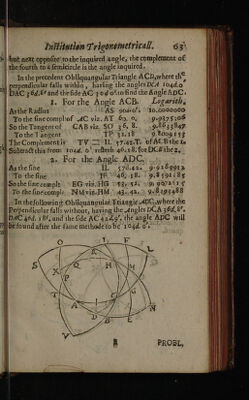 Institution Trigonometricall. 63
but next opposite to the inquired angle, the complement of
the fourth to a semicircle is the angle inquired.
In the precedent Obliquangular Triangle ACD, where the
perpendicular falls within, having the angles DCA 104d.0
DAC 36d.8' and the side AC 42d.0'. to find the Angle ADC.
1. For the Angle ACB. Logarith.
As the Radius AS 90d.0'. 10.0000000
To the sine compl of AC viz. AT
So the Tangent of CAB viz. SO 36, 8. 9.8633847
To the Tangent TP
The Complement is TV
Subtract this from 104d. 0' resteth 46.18. for DCB the 2.
2. For the Angle ADC.
As the sine IL
To the sine 46, 18. 9.8591185
So the sine compl: EG viz. HG 53, 52.
To the sine compl: NM viz. HM
In the following Obliquangular Triangle ADC, where the
Perpendicular falls without, having the Angles DCA 36d.8'.
DAC 46d.18', and the side AC 42d.0'. the angle ADC will
be found after the same methode to be 104d. 0'.
O I F L
S X Q R H M
P K
Z
T A C G
D B N
V E
PROBL,